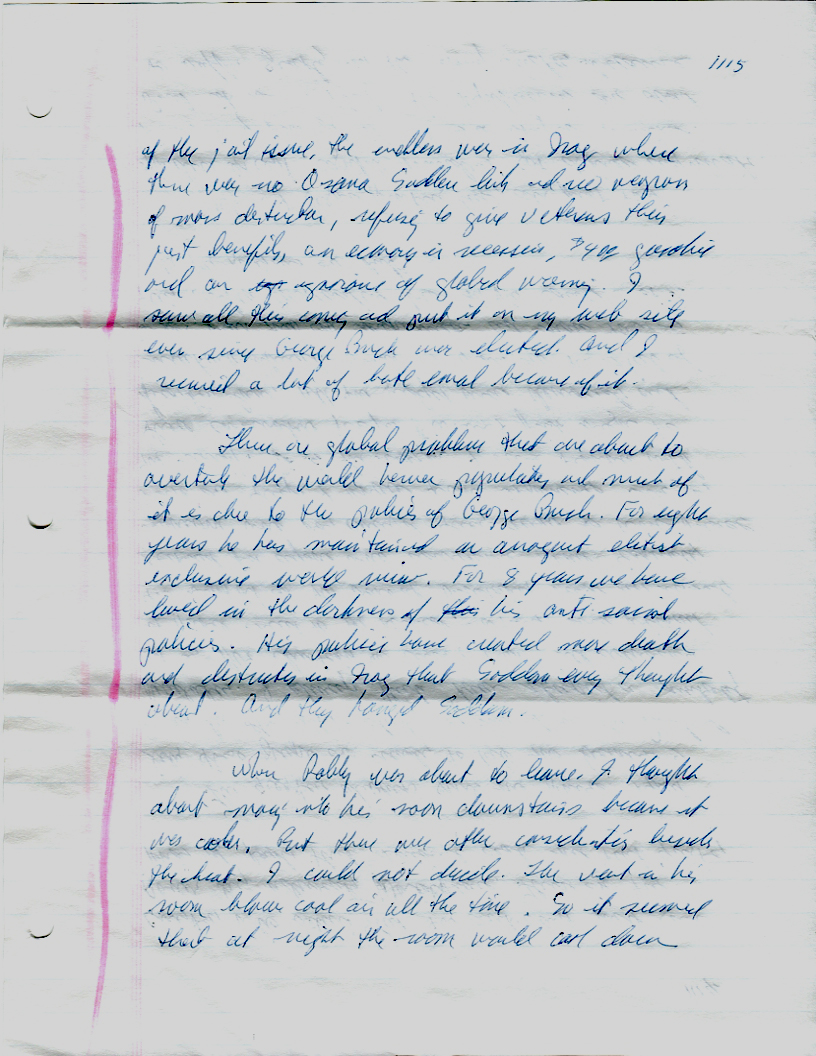 1115
of the jail issue, the endless war in Iraq where
there was no Osama Saddam link and no weapons
of mass destruction, refusing to give veterans their
just benefits, an economy in recession, $4 gasoline
and an ignorance of global warming. I
saw all this coming and put it on my web site
ever since George Bush was elected. And I
received a lot of hate email because of it.
There are global problems that are about to
overtake the world human population and much of
it is due to the policies of George Bush. For eight
years he has maintained an arrogant elitist
exclusive world view. For 8 years we have
lived in the darkness of his anti social
policies. His policies have created more death
and destruction in Iraq that Saddam every thought
about. And they hanged Saddam.
When Bobby was about to leave. I thought
about moving into his room downstairs because it
was cooler. But there were other considerations beside
the heat. I could not decide. The vent in his
room blows cool air all the time. So it seemed
that at night the room would cool down